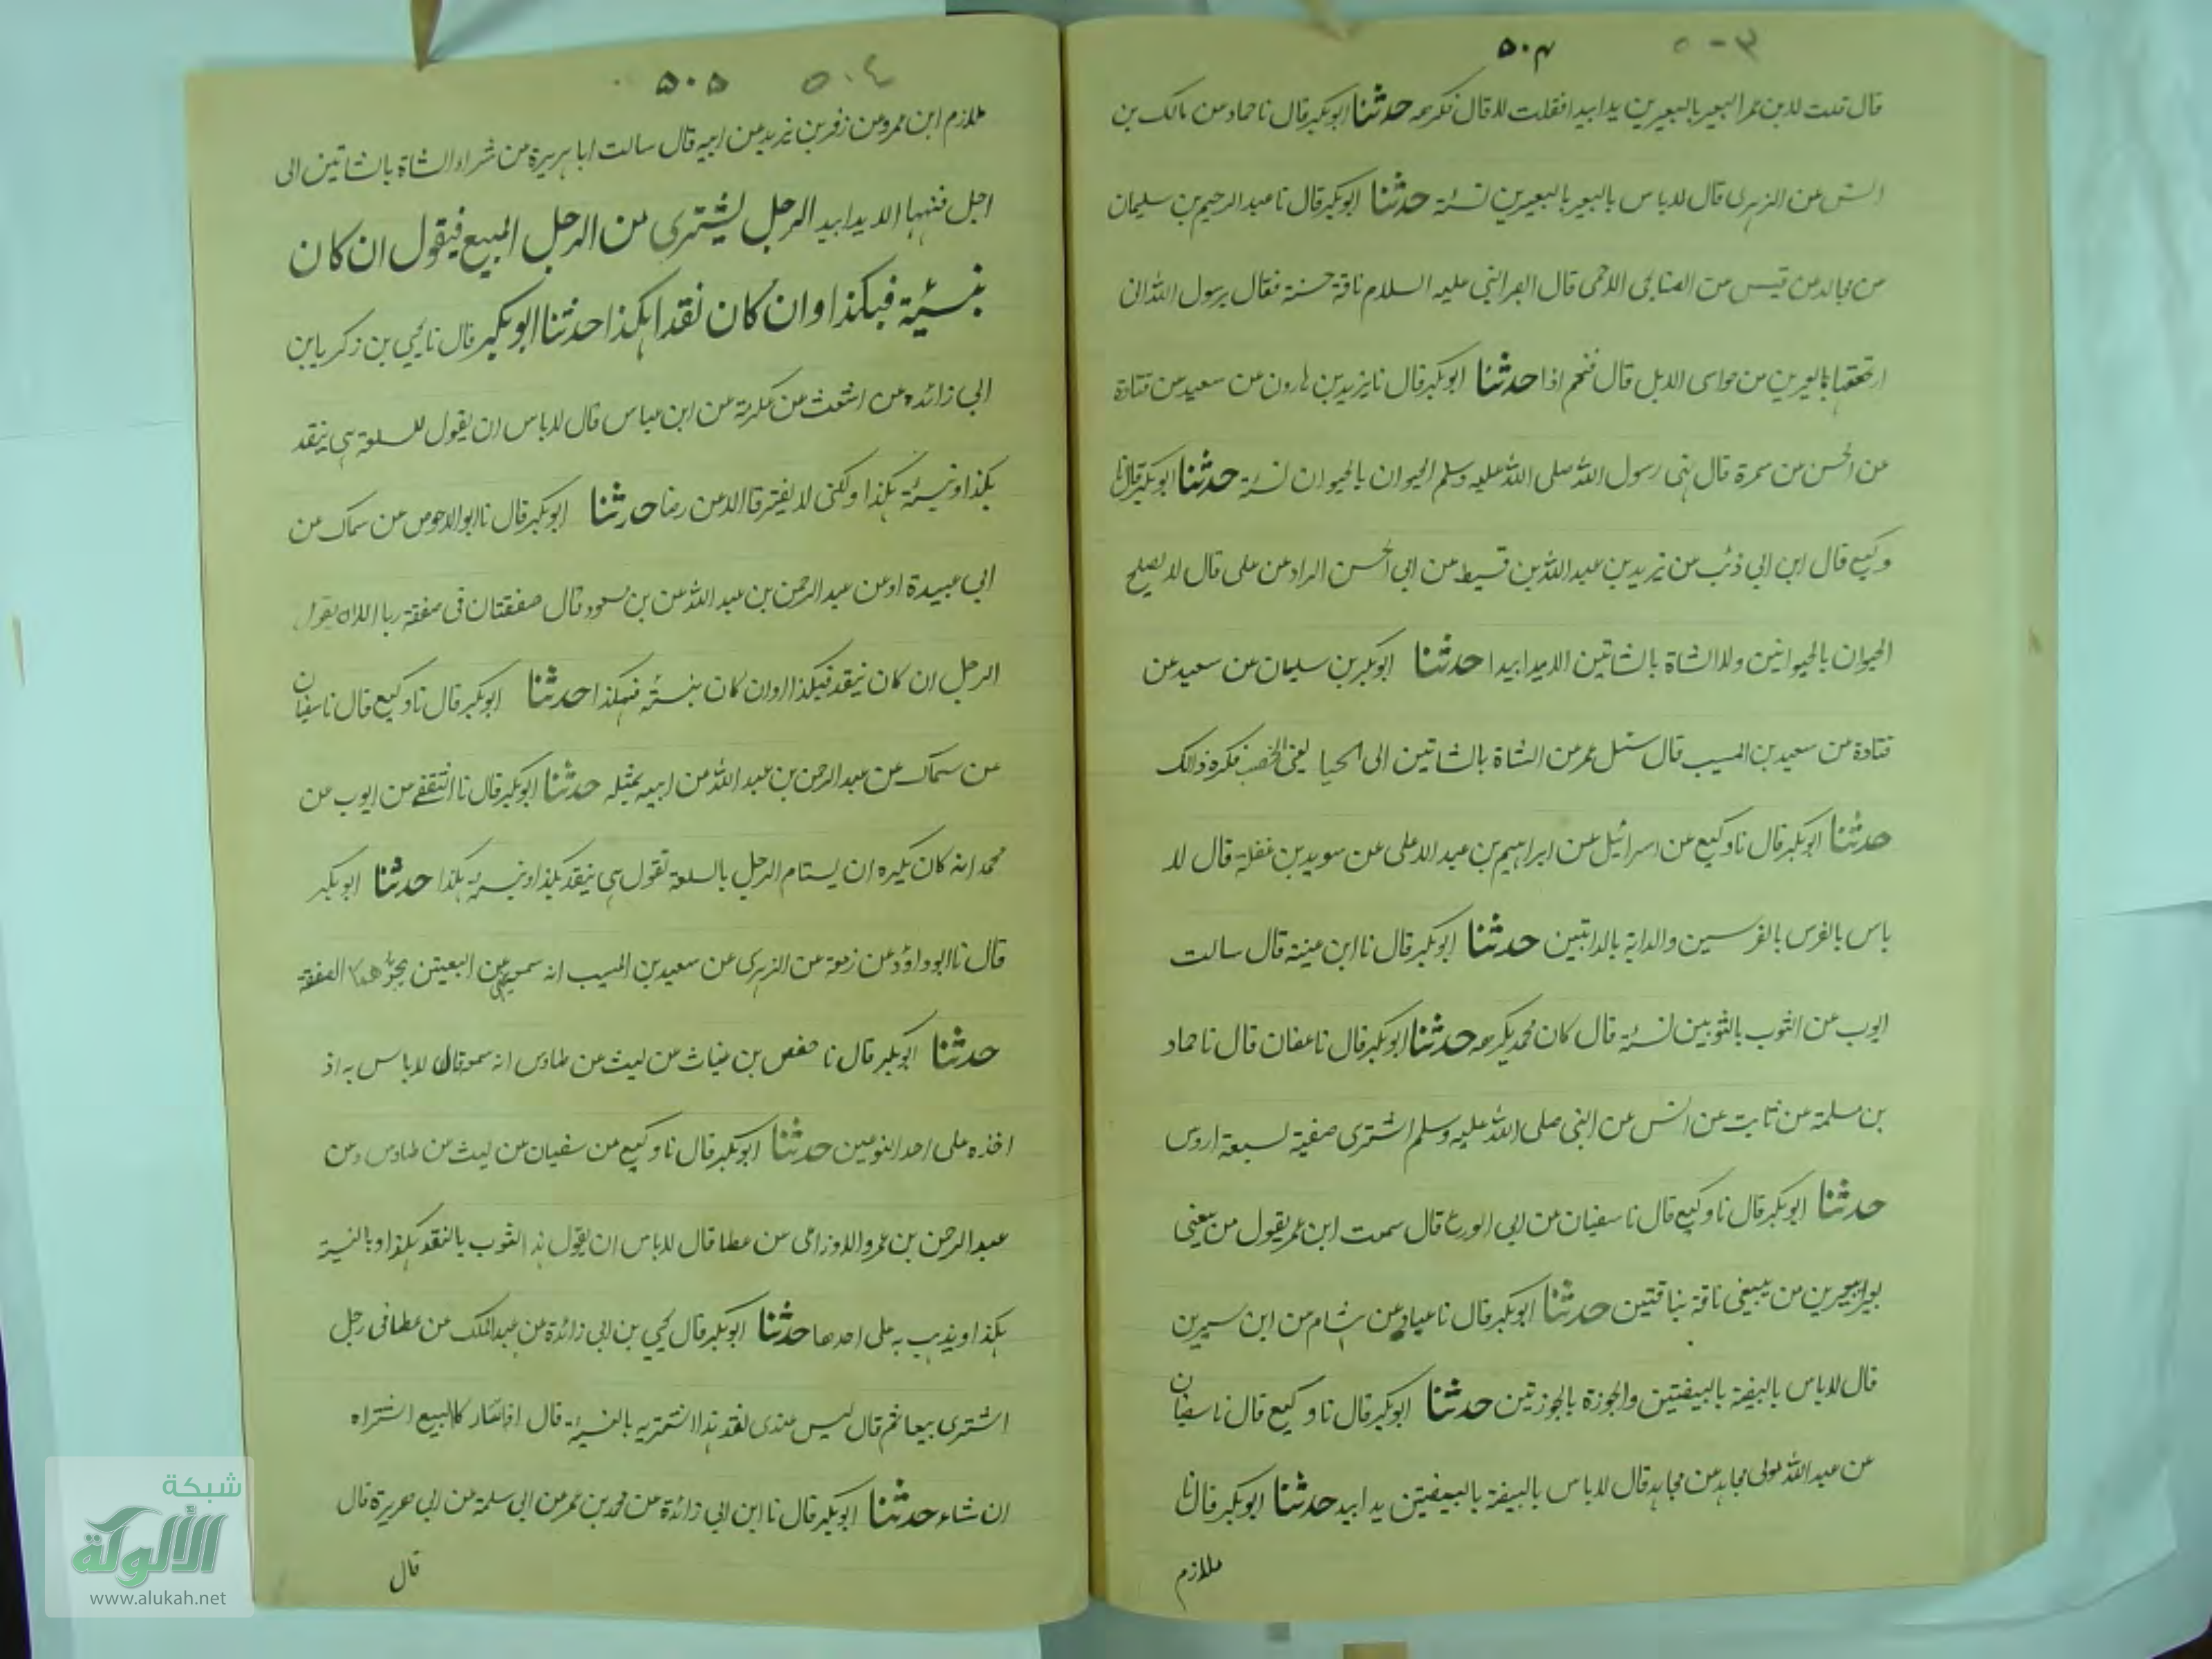 ۵۰۴
قال قلت لابن عمر البعير بالبعيرين يدا بيد افقلت لا قال فكرهه حدثنا ابوبكر قال نا حماد عن مالك بن
انس عن الزهرى قال لا باس بالبعير بالبعيرين نسئة حدثنا ابوبكر قال نا عبد الرحيم بن سليمان
عن مجالد عن قيس عن الصنابحى الاحمسى قال ابصر النبى عليه السلام ناقة حسنة فقال يرسول الله انى
ارتجعتها بالبعيرين من حواسى الابل قال فنعم اذا حدثنا ابوبكر قال نا يزيد بن هارون عن سعيد عن قتادة
عن الحسن عن سمرة قال نهى رسول الله صلى الله عليه وسلم الحيوان بالحيوان نسئة حدثنا ابوبكر قال نا
وكيع قال ابن ابى ذئب عن يزيد بن عبد الله بن قسيط عن ابى الحسن البراد عن على قال لا يصلح
الحيوان بالحيوانين ولا الشاة بالشاتين الا يدا بيدا حدثنا ابوبكر بن سليمان عن سعيد عن
قتادة عن سعيد بن المسيب قال سئل عمر عن الشاة بالشاتين الى الحيا يعنى الخصب فكره ذالك
حدثنا ابوبكر قال نا وكيع عن اسرائيل عن ابراهيم بن عبد الاعلى عن سويد بن غفلة قال لا
باس بالفرس بالفرسين والدابة بالدابتين حدثنا ابوبكر قال نا ابن عيينة قال سالت
ايوب عن الثوب بالثوبين نسئة قال كان محمد يكرهه حدثنا ابوبكر قال نا عفان قال نا حماد
بن سلمة عن ثابت عن انس عن النبى صلى الله عليه وسلم اشترى صفية لسبعة اروس
حدثنا ابوبكر قال نا وكيع قال نا سفيان عن ابى الورع قال سمعت ابن عمر يقول من يبعنى
بعيرا ببعيرين من يبيعنى ناقة بناقتين حدثنا ابوبكر قال نا عباد عن هشام عن ابن سيرين
قال لا باس بالبيضة بالبيضتين والجوزة بالجوزتين حدثنا ابوبكر قال نا وكيع قال نا سفيان
عن عبد الله مولى مجاهد عن مجاهد قال لا باس بالبيضة بالبيضتين يدا بيد حدثنا ابوبكر قال نا
ملازم
۵۰۵
٥٠٤
ملازم ابن عمرو عن زفر بن يزيد عن ابيه قال سالت ابا هريرة عن شراء الشاة بالشاتين الى
اجل فنهها الا يدا بيد الرجل يشترى من الرجل المبيع فيقول ان كان
بنسيئة فبكذا وان كان نقدا بكذا حدثنا ابوبكر قال نا يحيى بن زكريا بن
ابى زائده عن اشعث عن عكرمة عن ابن عباس قال لا باس ان يقول للسلعة هى بنقد
بكذا ونسيئة بكذا ولكن لا يفترقا الا عن رضا حدثنا ابوبكر قال نا ابو الاحوص عن سماك عن
ابى عبيدة او عن عبد الرحمن بن عبد الله عن بن مسعود قال صفقتان فى صفقة ربا الا ان يقول
الرجل ان كان بنقد فبكذا وان كان بنسئة فبكذا حدثنا ابوبكر قال نا وكيع قال نا سفيان
عن سماك عن عبد الرحمن بن عبد الله عن ابيه بمثله حدثنا ابوبكر قال نا الثقفى عن ايوب عن
محمد انه كان يكره ان يستام الرجل بالسلعة تقول هى بنقد بكذا ونسيئة بكذا حدثنا ابوبكر
قال نا ابوداؤد عن زمعة عن الزهرى عن سعيد بن المسيب انه البيعتين الصفقة
حدثنا ابوبكر قال نا حفص بن غياث عن ليث عن طاوس انه سمعه قال لا باس به اذ
اخذه على احد النوعين حدثنا ابوبكر قال نا وكيع عن سفيان عن ليث عن طاوس وعن
عبد الرحمن بن عمرو الاوزاعى عن عطا قال لا باس ان يقول هذ الثوب بالنقد بكذا وبالنسية
بكذا ويذهب به على احدها حدثنا ابوبكر قال يحيى بن ابى زائدة عن عبد الملك عن عطا فى رجل
اشترى بيعا ثم قال ليس عندى نقد هذا اشتريه بالنسية قال البيع اشتراه
ان شاء حدثنا ابوبكر قال نا ابن ابى زائدة عن محمد بن عمر عن ابى سلمة عن ابى هريرة قال
قال
شبكة
الألوكة
www.alukah.net